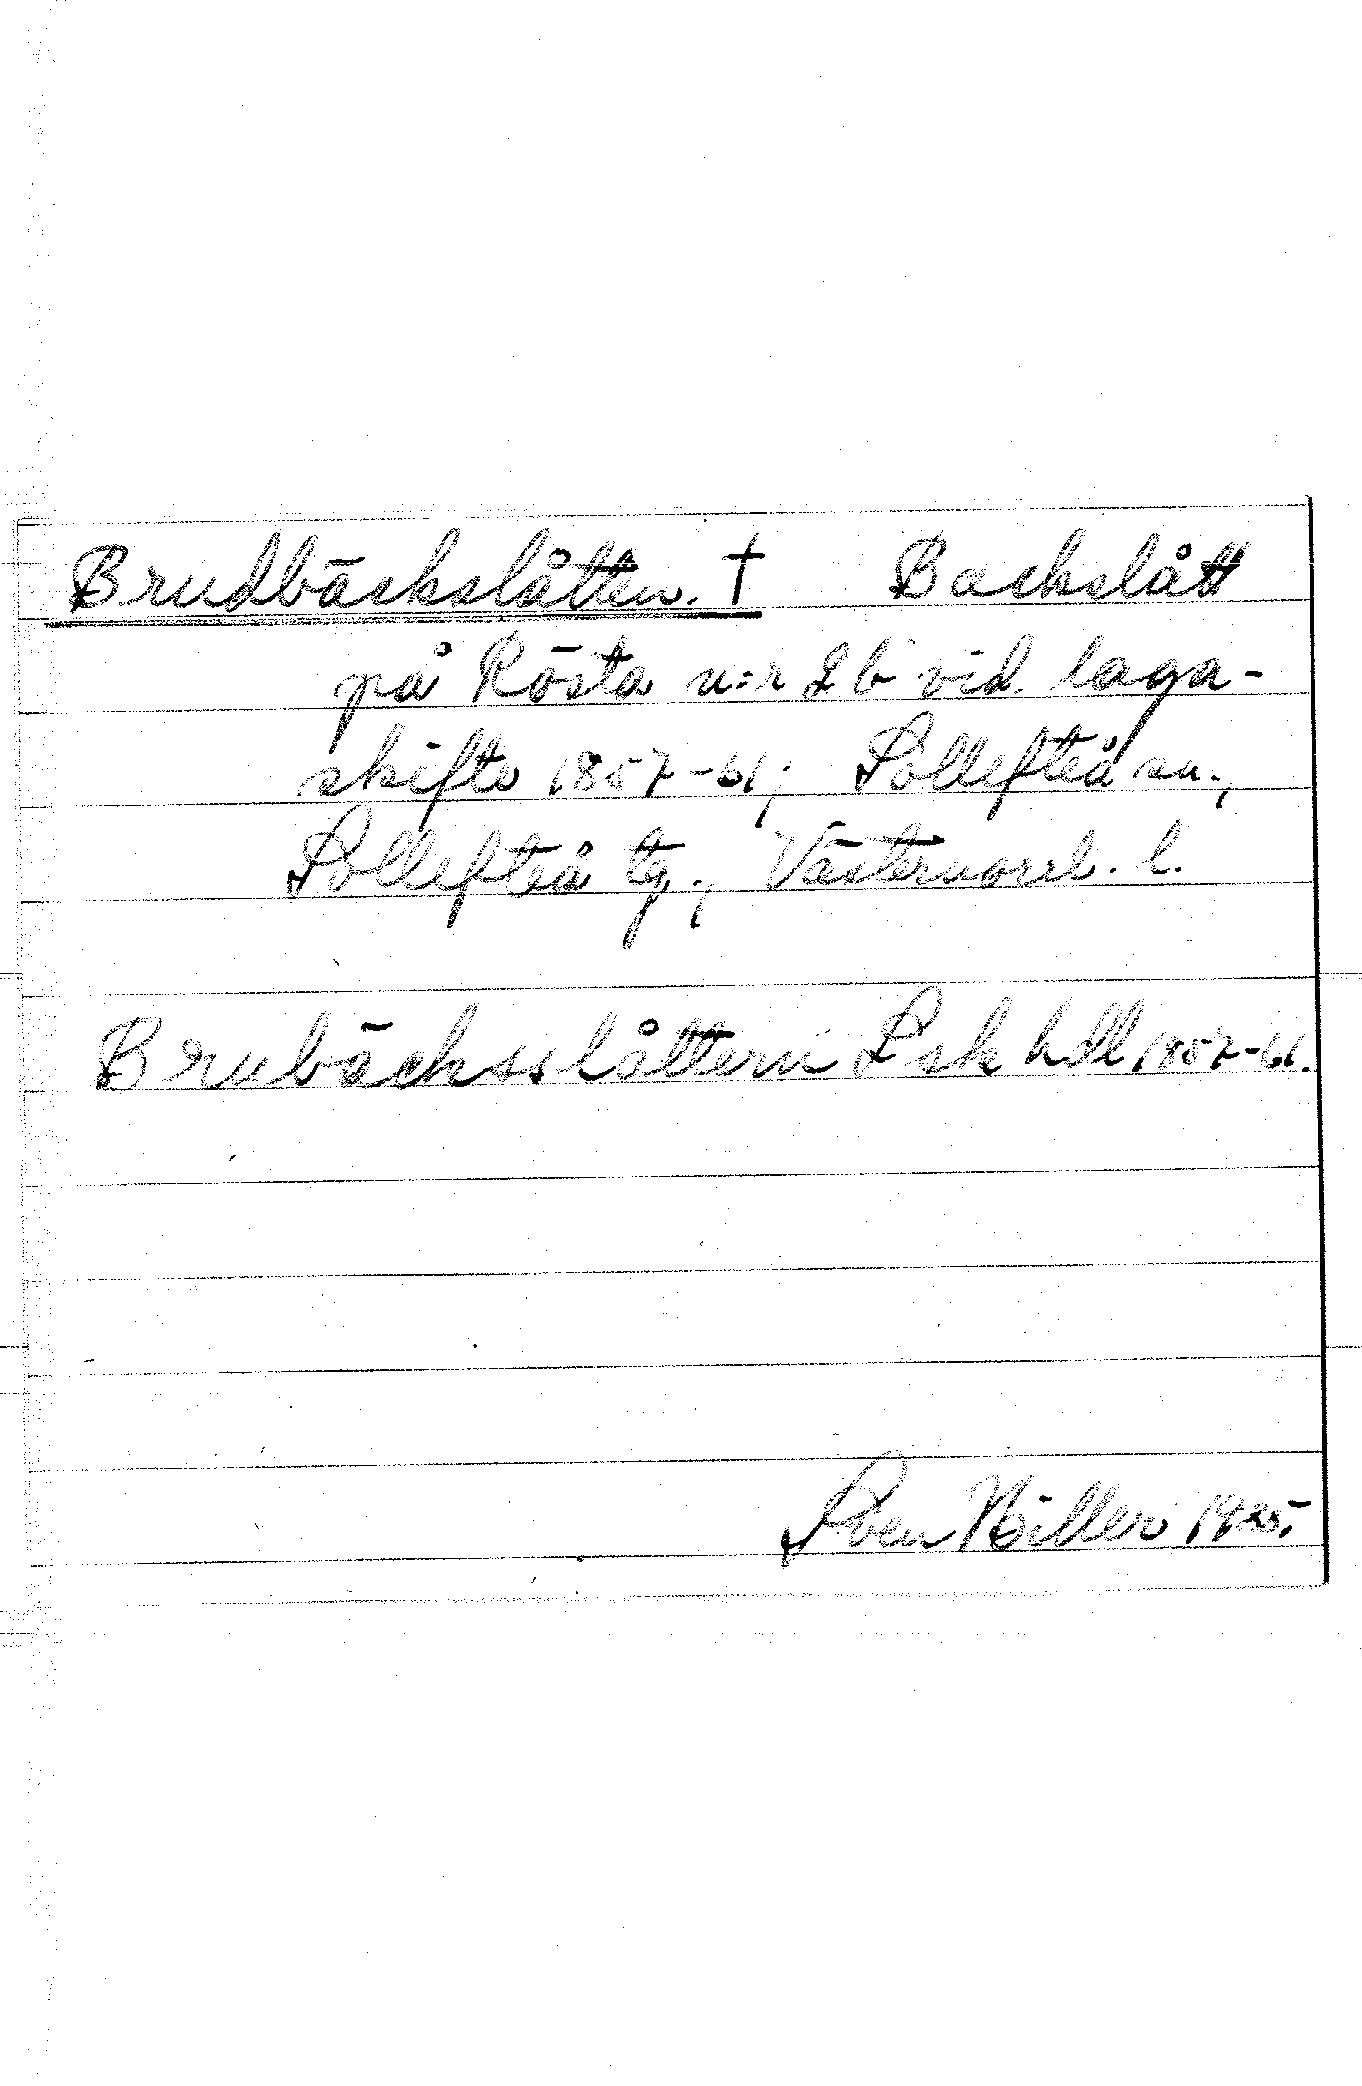 Brudbäckslåtten. † Backslått
på Rösta n:r 2 b vid laga-
skifte 1857-61; Sollefteå sn.,
Sollefteå tg., Västernorrl. l.
Brubäcksslåttern Lsk hdl 1857-61.
Sven Hiller 1925.